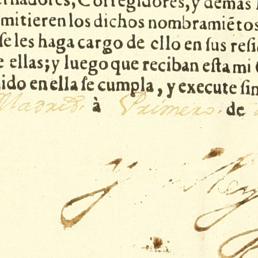 ernadores, Corregidores, y demas
mitieren los dichos nombramiẽtos
se les haga cargo de ello en sus resi
e ellas; y luego que reciban esta mi
ido en ella se cumpla, y execute sin
Madrid à Primero de
Yo el Rey